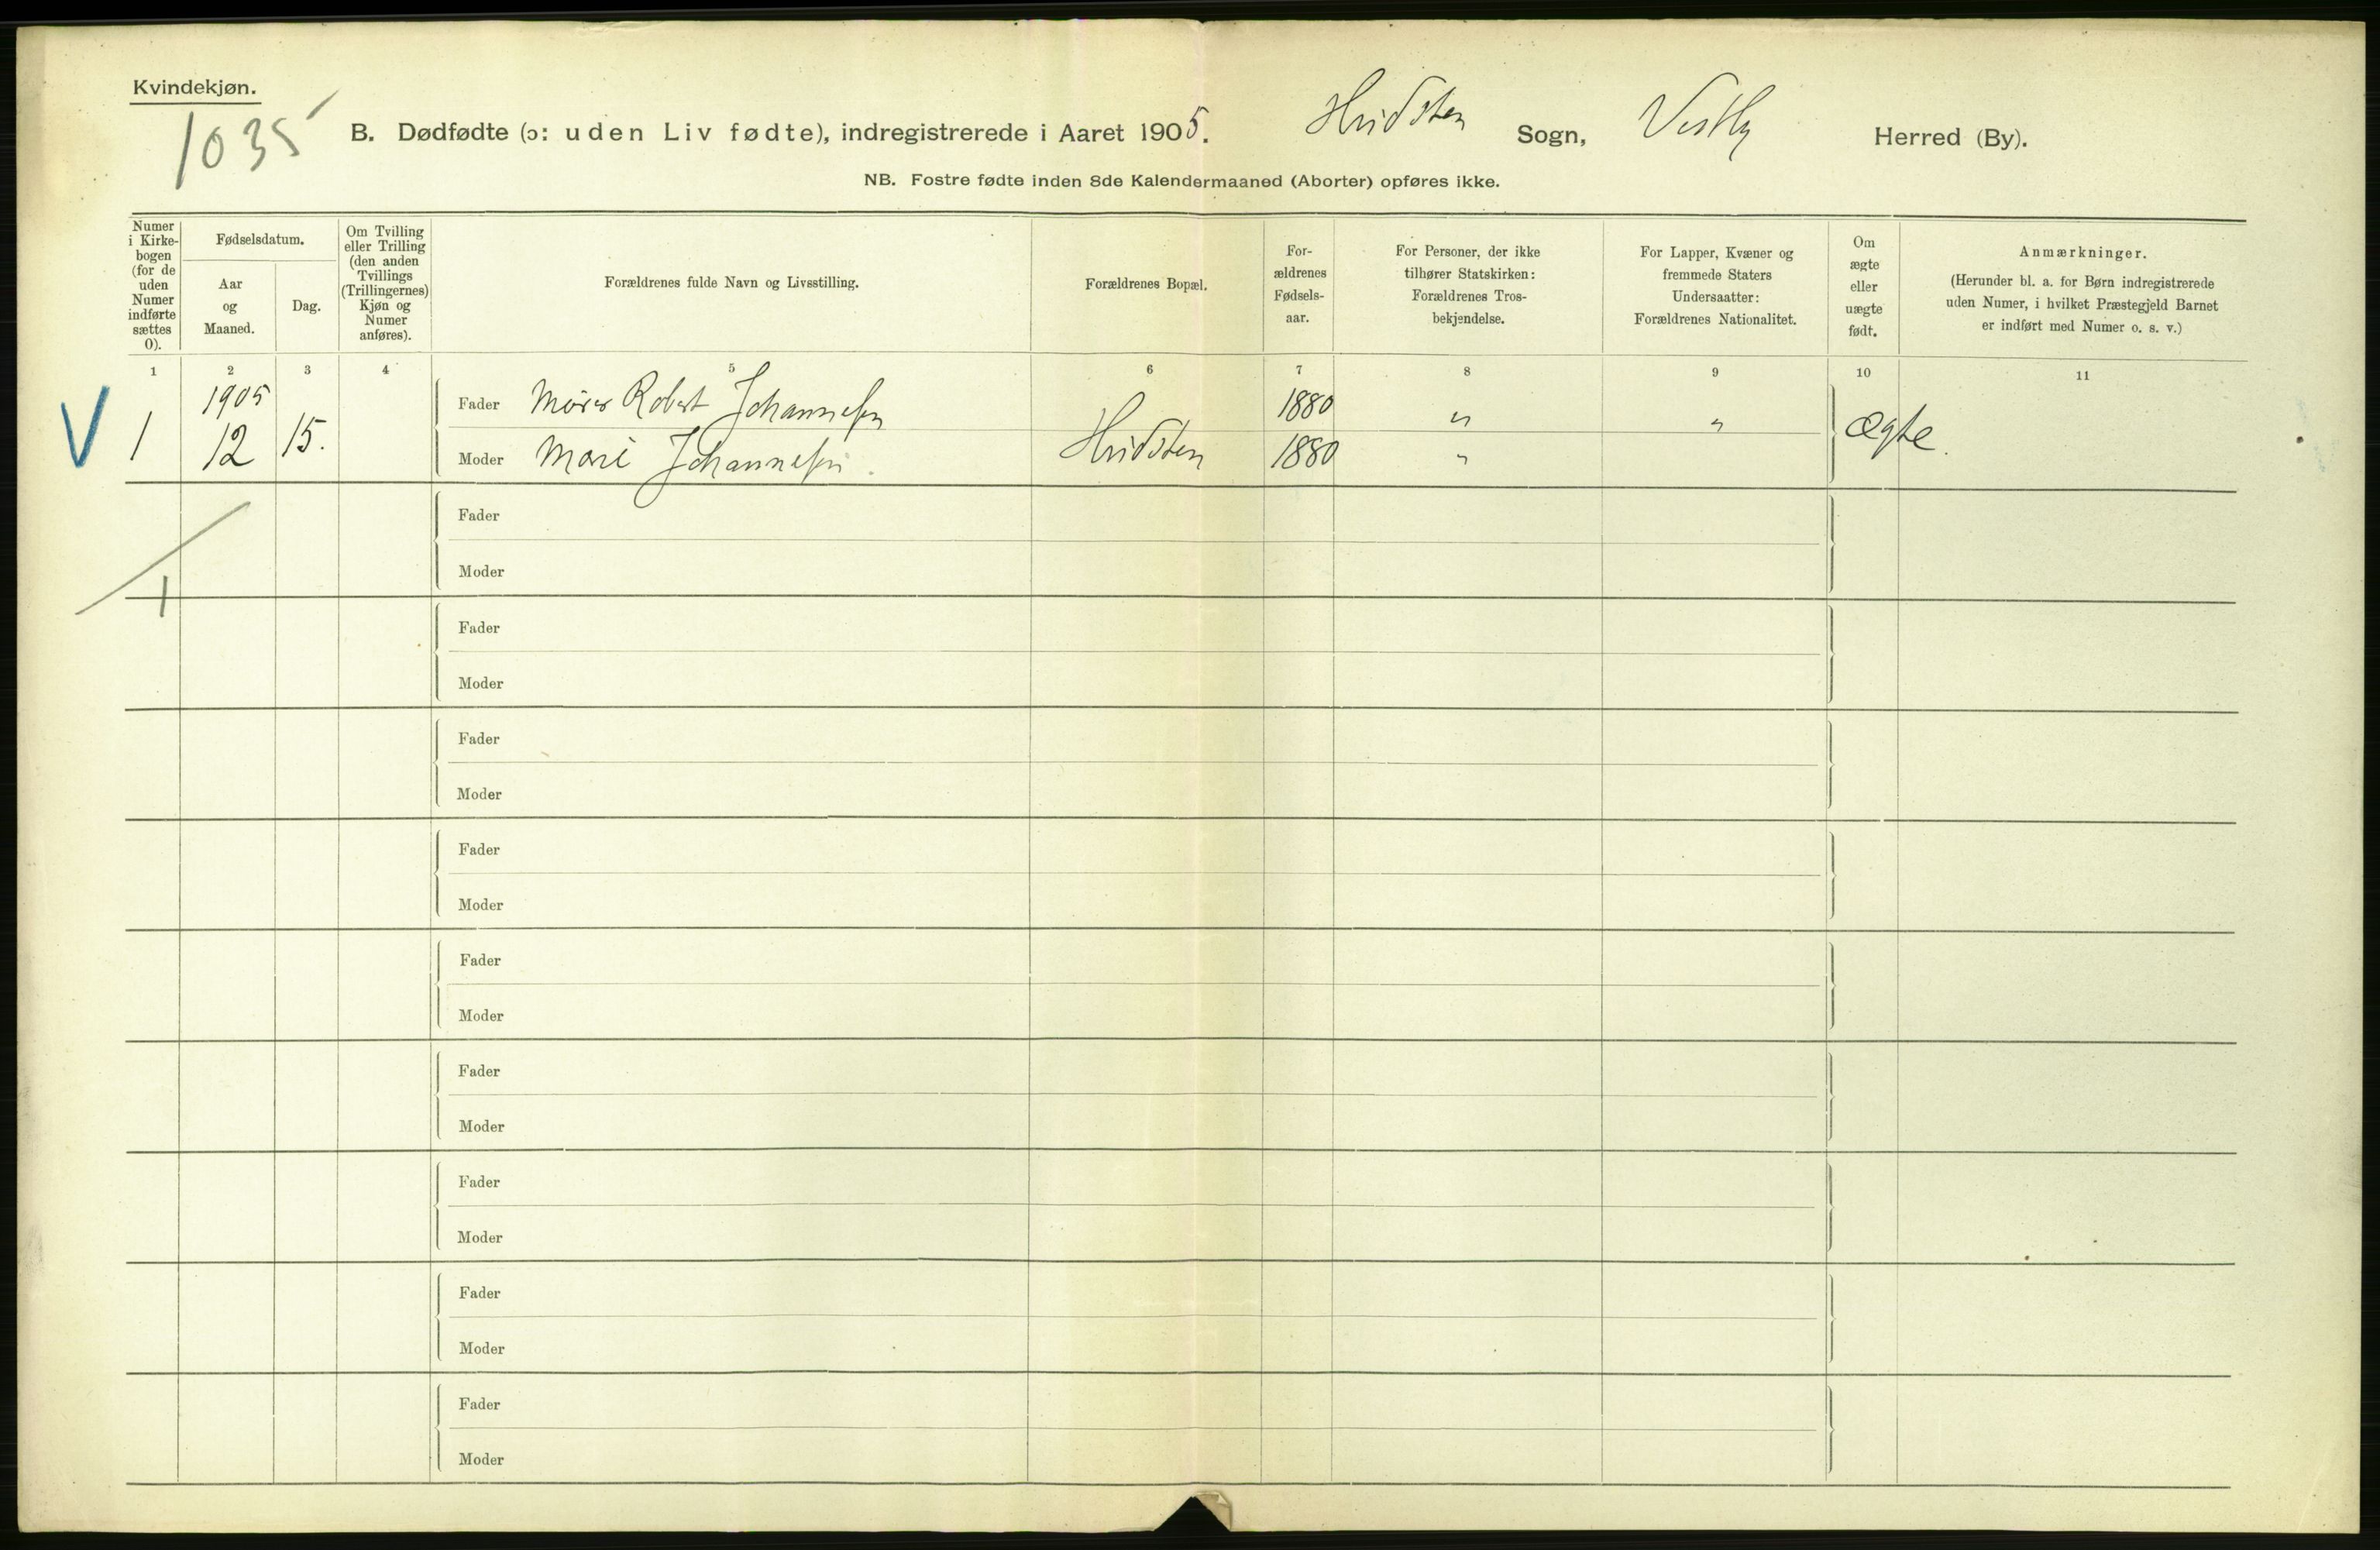 Kvindekjøn.
1035
B. Dødfødte (ɔ: uden Liv fødte), indregistrerede i Aaret 1905. Hvidsten Sogn, Vestby Herred (By).
NB. Fostre fødte inden 8de Kalendermaaned (Aborter) opføres ikke.
Numer i Kirke-bogen (for de uden Numer indførte sættes 0).
Fødselsdatum.
Aar og Maaned.
Dag.
Om Tvilling eller Trilling (den anden Tvillings (Trillingernes) Kjøn og Numer anføres).
Forældrenes fulde Navn og Livsstilling.
Forældrenes Bopæl.
For-ældrenes Fødsels-aar.
For Personer, der ikke tilhører Statskirken: Forældrenes Tros-bekjendelse.
For Lapper, Kvæner og fremmede Staters Undersaatter: Forældrenes Nationalitet.
Om ægte eller uægte født.
Anmærkninger.
(Herunder bl. a. for Børn indregistrerede uden Numer, i hvilket Præstegjeld Barnet er indført med Numer o. s. v.)
1 2 3 4 5 6 7 8 9 10 11
V 1 1905 12 15.
Fader Robert Johannesen 1880 " "
Moder Johannesen. Hvidsten 1880 " Ægte.
Fader
Moder
1
Fader
Moder
Fader
Moder
Fader
Moder
Fader
Moder
Fader
Moder
Fader
Moder
Fader
Moder
Fader
Moder